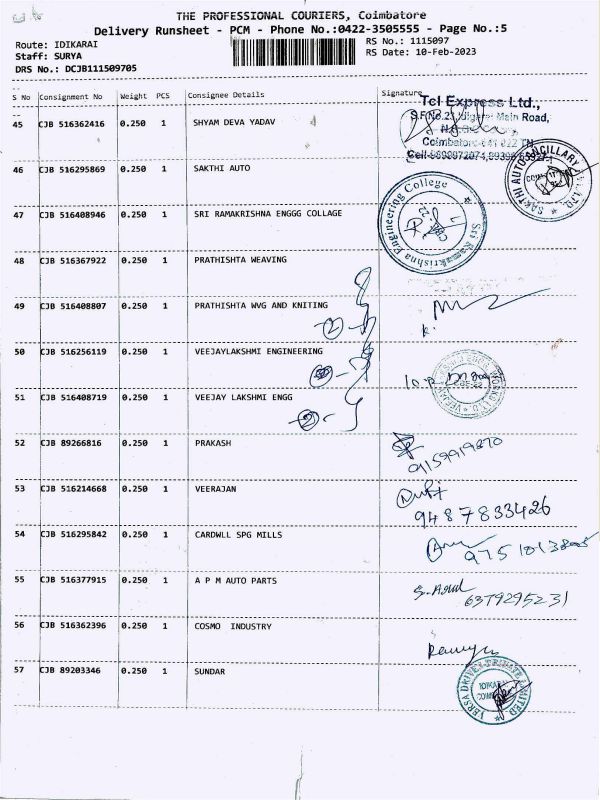 THE PROFESSIONAL COURIERS, Coimbatore
Delivery Runsheet - PCM - Phone No.:0422-3505555 - Page No.:5
Route: IDIKARAI
RS No.: 1115097
Staff: SURYA
RS Date: 10-Feb-2023
DRS No.: DCJB111509705
S No Consignment No Weight PCS Consignee Details Signature
Tcl Express Ltd.,
Main Road,
45 CJB 516362416 0.250 1 SHYAM DEVA YADAV
46 CJB 516295869 0.250 1 SAKTHI AUTO
SAKTHI AUTO ANCILLARY
47 CJB 516408946 0.250 1 SRI RAMAKRISHNA ENGGG COLLAGE
Sri Ramakrishna Engineering College
48 CJB 516367922 0.250 1 PRATHISHTA WEAVING
49 CJB 516408807 0.250 1 PRATHISHTA WVG AND KNITING
2
50 CJB 516256119 0.250 1 VEEJAYLAKSHMI ENGINEERING
51 CJB 516408719 0.250 1 VEEJAY LAKSHMI ENGG
2
52 CJB 89266816 0.250 1 PRAKASH
9159919870
53 CJB 516214668 0.250 1 VEERAJAN
9487833426
54 CJB 516295842 0.250 1 CARDWLL SPG MILLS
55 CJB 516377915 0.250 1 A P M AUTO PARTS
6379295231
56 CJB 516362396 0.250 1 COSMO INDUSTRY
57 CJB 89203346 0.250 1 SUNDAR
VERSA DRIVES PRIVATE LIMITED